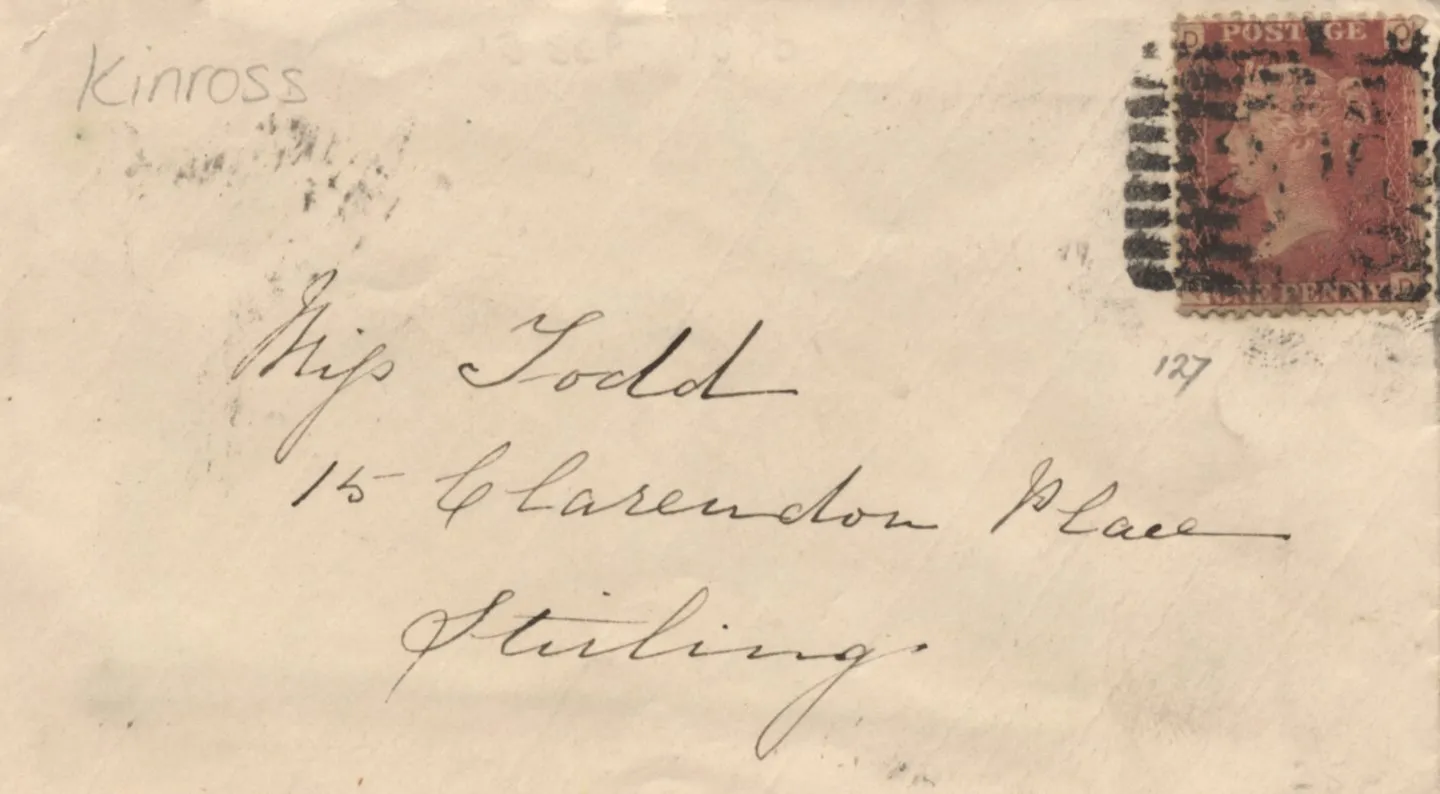 Kinross
D POSTAGE O
ONE PENNY D
127
Miss Todd
15 Clarendon Place
Stirling.